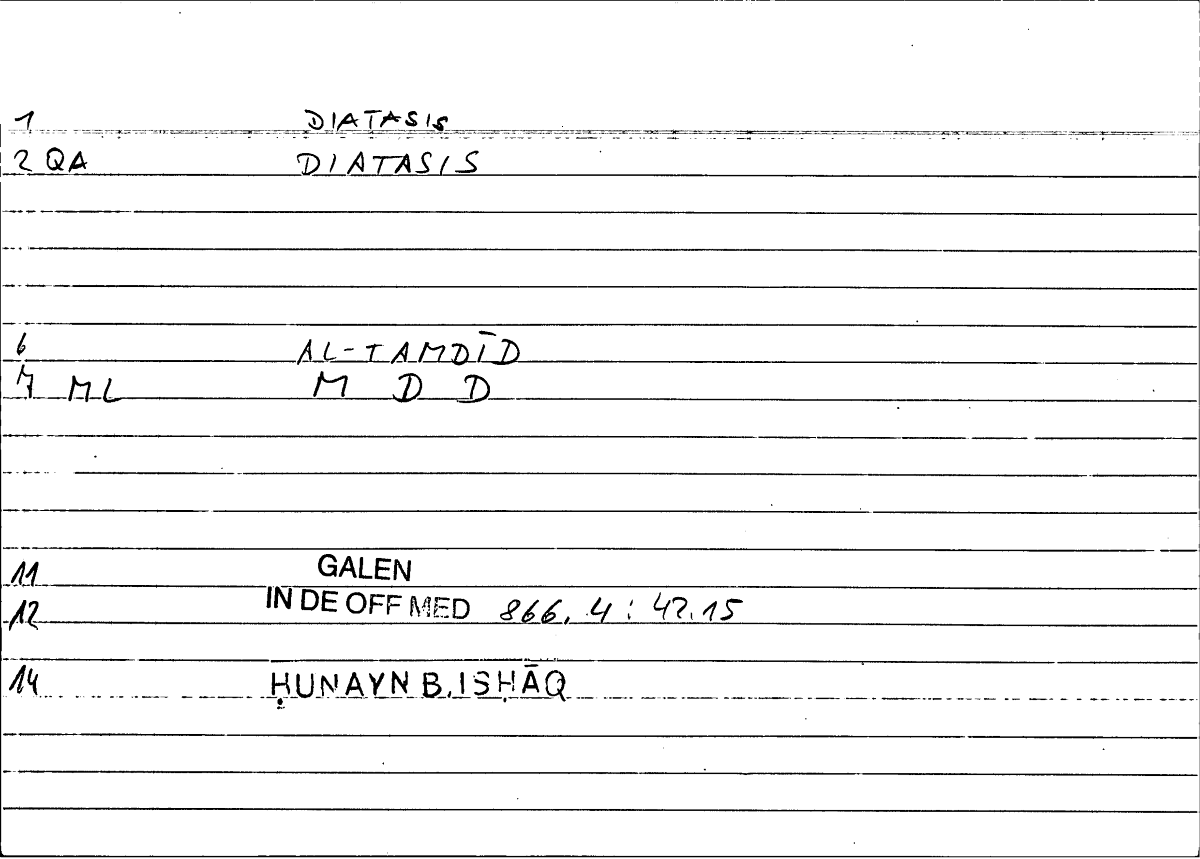 1 DIATASIS
2 QA DIATASIS
6 AL-TAMDĪD
7 ML M D D
11 GALEN
12 IN DE OFF MED 866, 4 : 42.15
14 ḤUNAYN B. ISḤĀQ